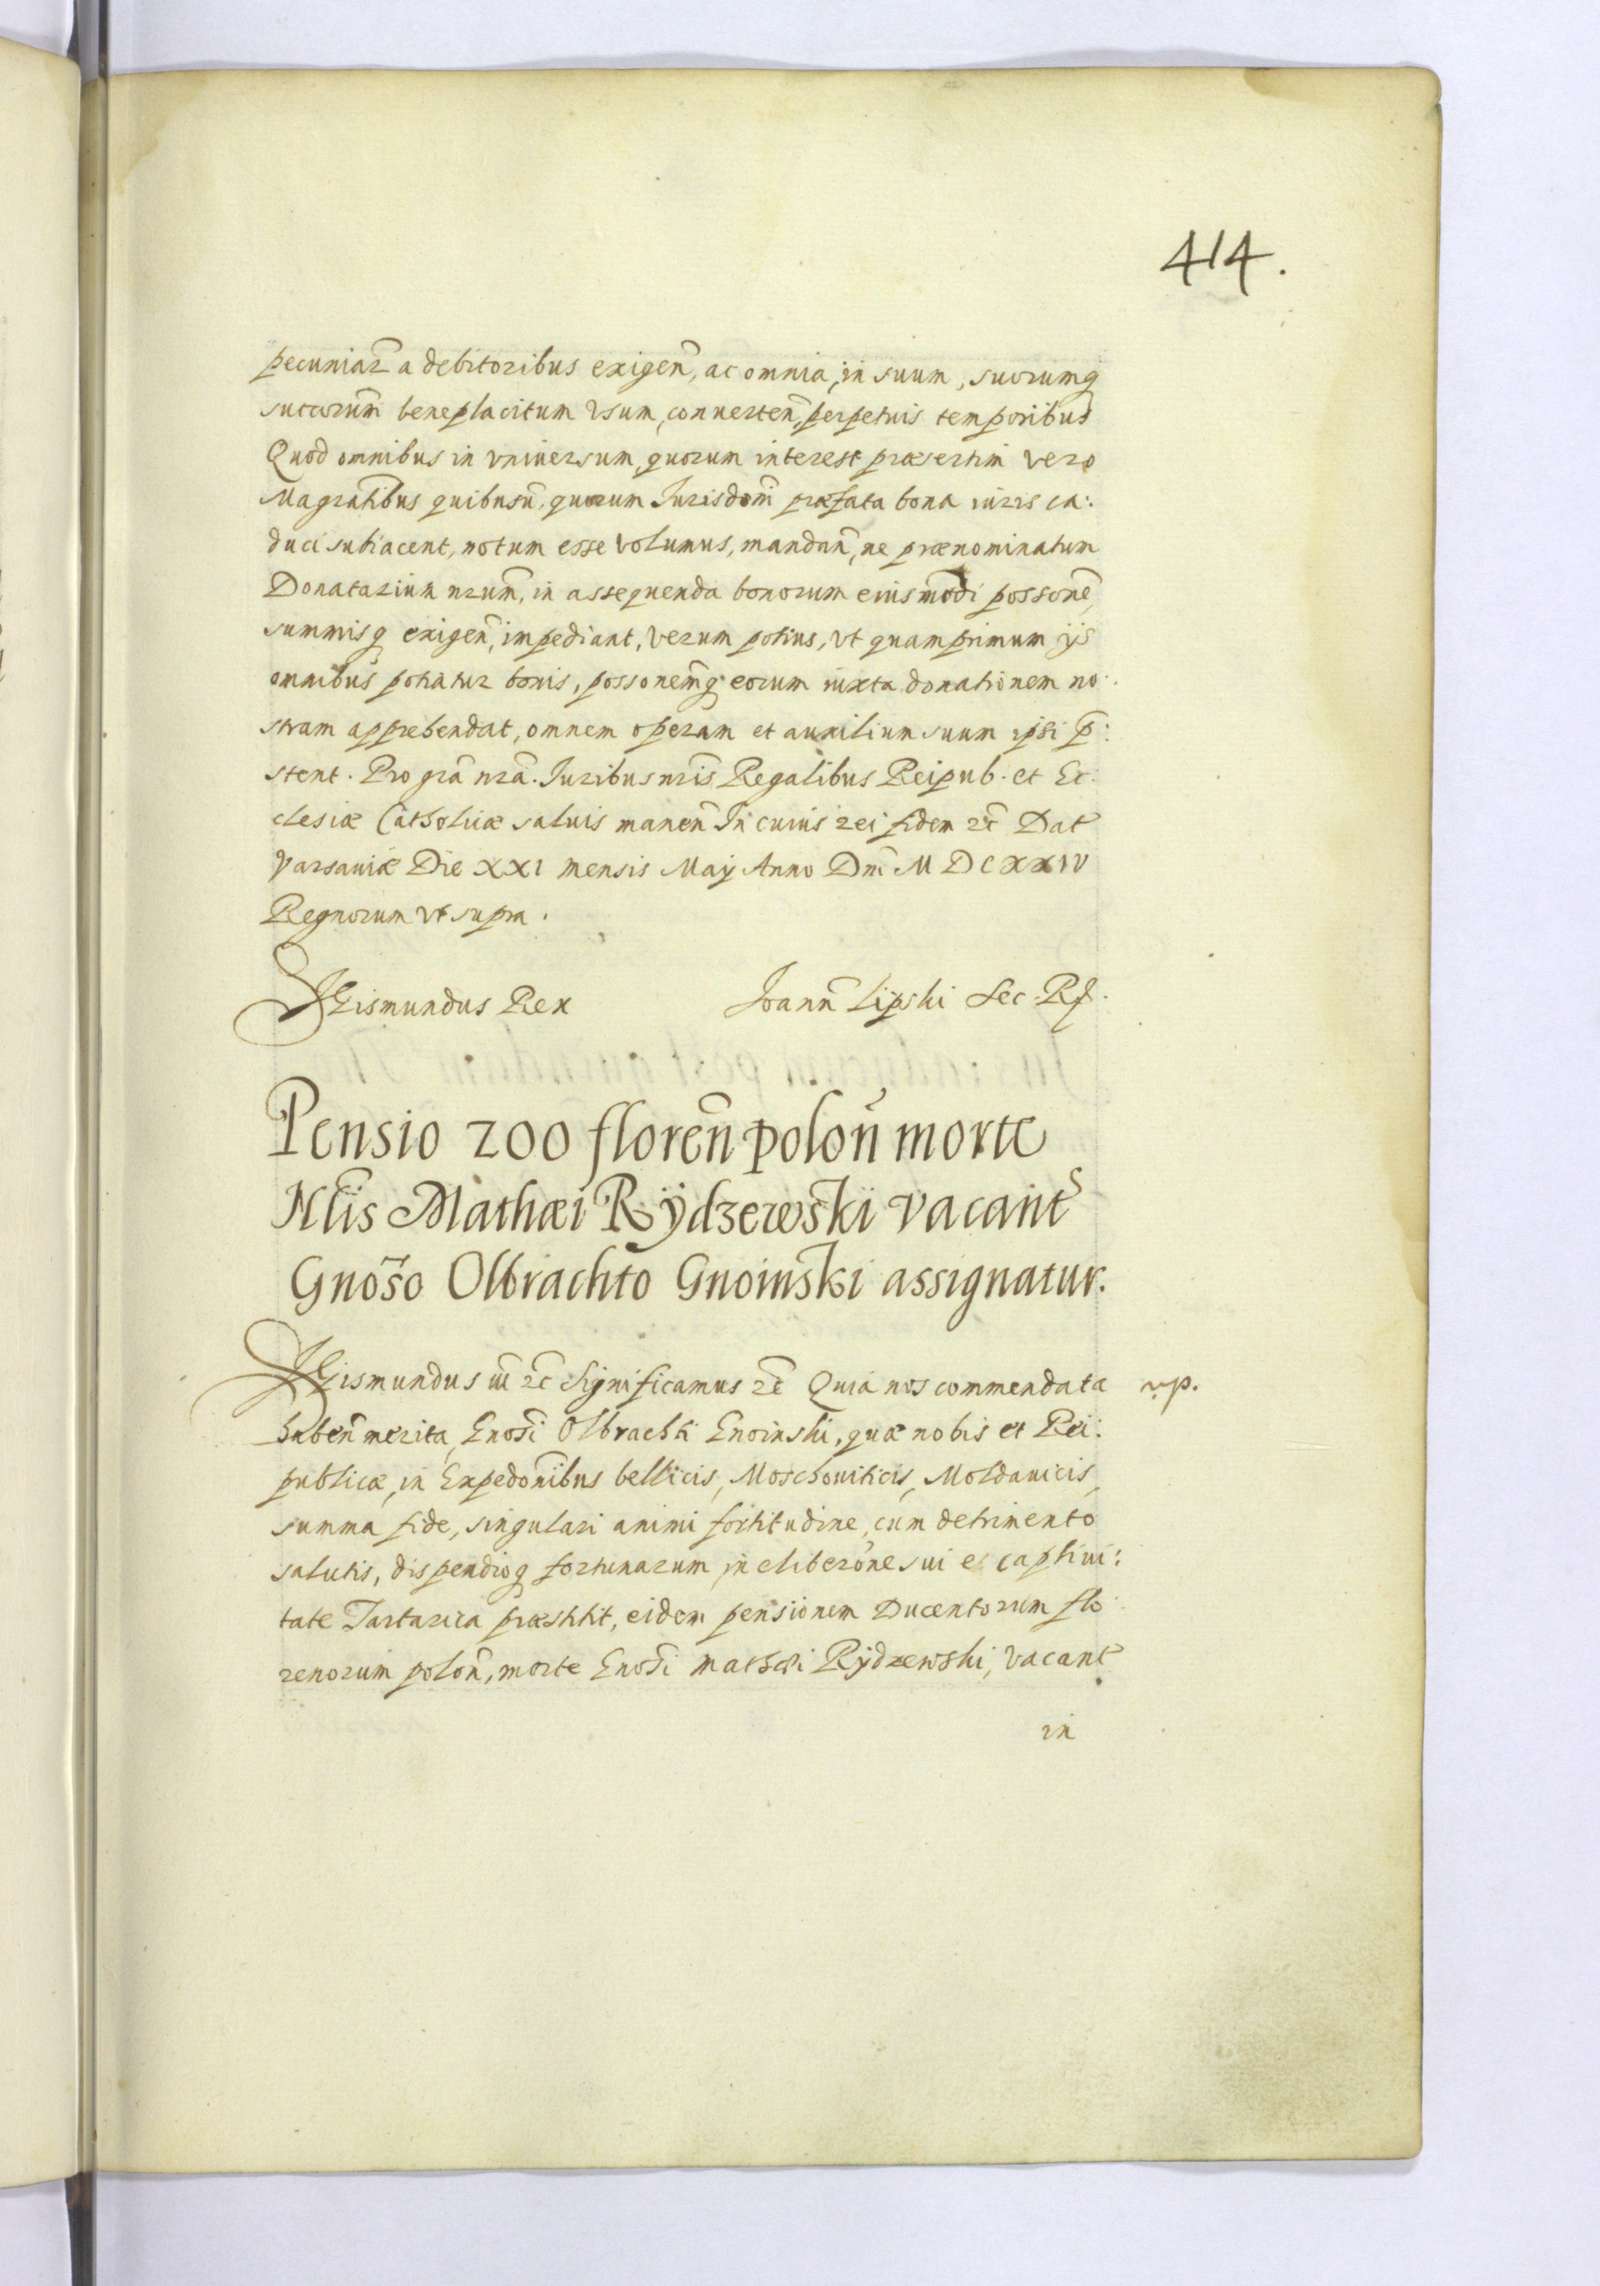 414.
pecuniar̃ a debitoribus exigen̄, ac omnia, in suum, suorumq
succorum̄ beneplacitum vsum, conuerten̄, perpetuis temporibus
Quod omnibus in vniuersum, quorum interest præsertim vero
Magratibus quibusuis̄, quorum Jurisdom̄i præfata bona iuris ca:
duci subiacent, notum esse volumus, mandan̄, ne prænominatum
Donatarium nrum̄, in assequenda bonorum eiusmodi possone̅,
summisq exigen̄, impediant, verum potius, vt quamprimum ijs
omnibus potiatur bonis, possonem̄q eorum iuxta donationem no:
stram apprehendat, omnem operam et auxilium suum ipsi p̄:
stent. Pro gra̅ nra̅. Juribus nris̄ Regalibus Reipub. et Ec:
clesiæ Catholicæ saluis manen̄ In cuius rei fidem &c Dat
Varsauiæ Die XXI mensis Maij Anno Dni̅ M DCXXIV
Regnorum vt supra.
Sigismundus Rex Joann̄ Lipski Sec. Rf.
Pensio 200 floren̄ polon̄ morte
Nlis̄ Mathæi Rÿdzewski vacant
Gnoso̅ Olbrachto Gnoinski assignatur.
Sigismundus iii̅ &c Significamus &c Quia nos commendata
haben̄ merita, Gnosi̅ Olbrachti Gnoinski, quæ nobis et Rei:
publicæ, in Expedonibus̄ bellicis, Moschouiticis, Moldauicis,
summa fide, singulari animi fortitudine, cum detrimento
salutis, dispendioq fortunarum, in eliberone̅ sui e captiui:
tate Tartarica præstitit, eidem pensionem Ducentorum flo:
renorum polon̄, morte Gnosi̅ Mathæi Rÿdzewski, vacant
in